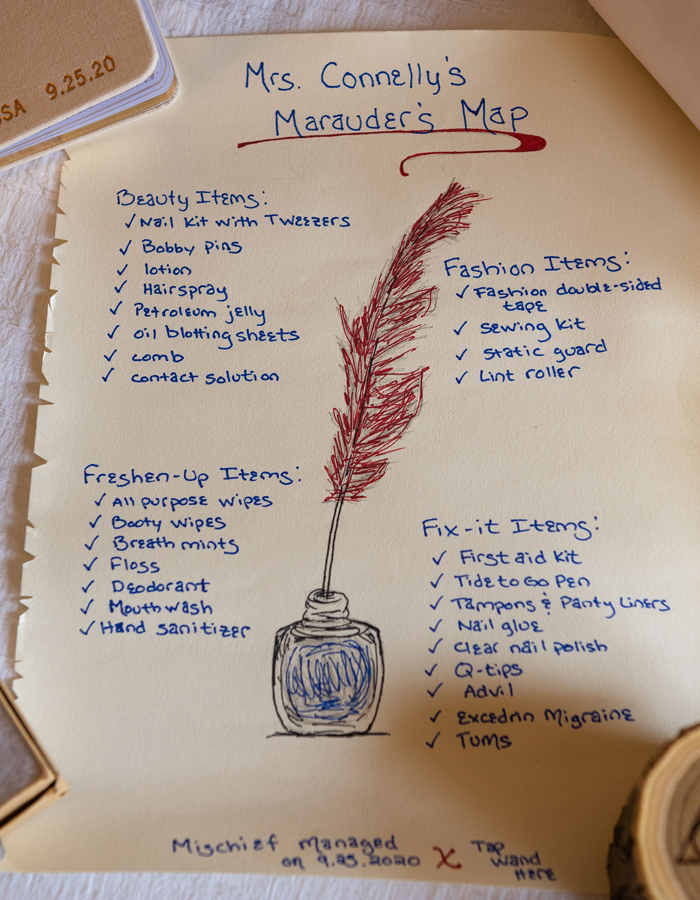 SA 9.25.20
Mrs. Connelly's
Marauder's Map
Beauty Items:
✓ Nail Kit with Tweezers
✓ Bobby pins
✓ lotion
✓ Hairspray
✓ Petroleum jelly
✓ oil blotting sheets
✓ comb
✓ contact solution
Fashion Items:
✓ Fashion double-sided
tape
✓ sewing kit
✓ static guard
✓ Lint roller
Freshen-Up Items:
✓ All purpose wipes
✓ Booty wipes
✓ Breath mints
✓ Floss
✓ Deodorant
✓ Mouthwash
✓ Hand sanitizer
Fix-it Items:
✓ First aid kit
✓ Tide to Go Pen
✓ Tampons & Panty Liners
✓ Nail glue
✓ Clear nail polish
✓ Q-tips
✓ Advil
✓ Excedrin Migraine
✓ Tums
Mischief Managed
on 9.25.2020
X
Tap
Wand
Here